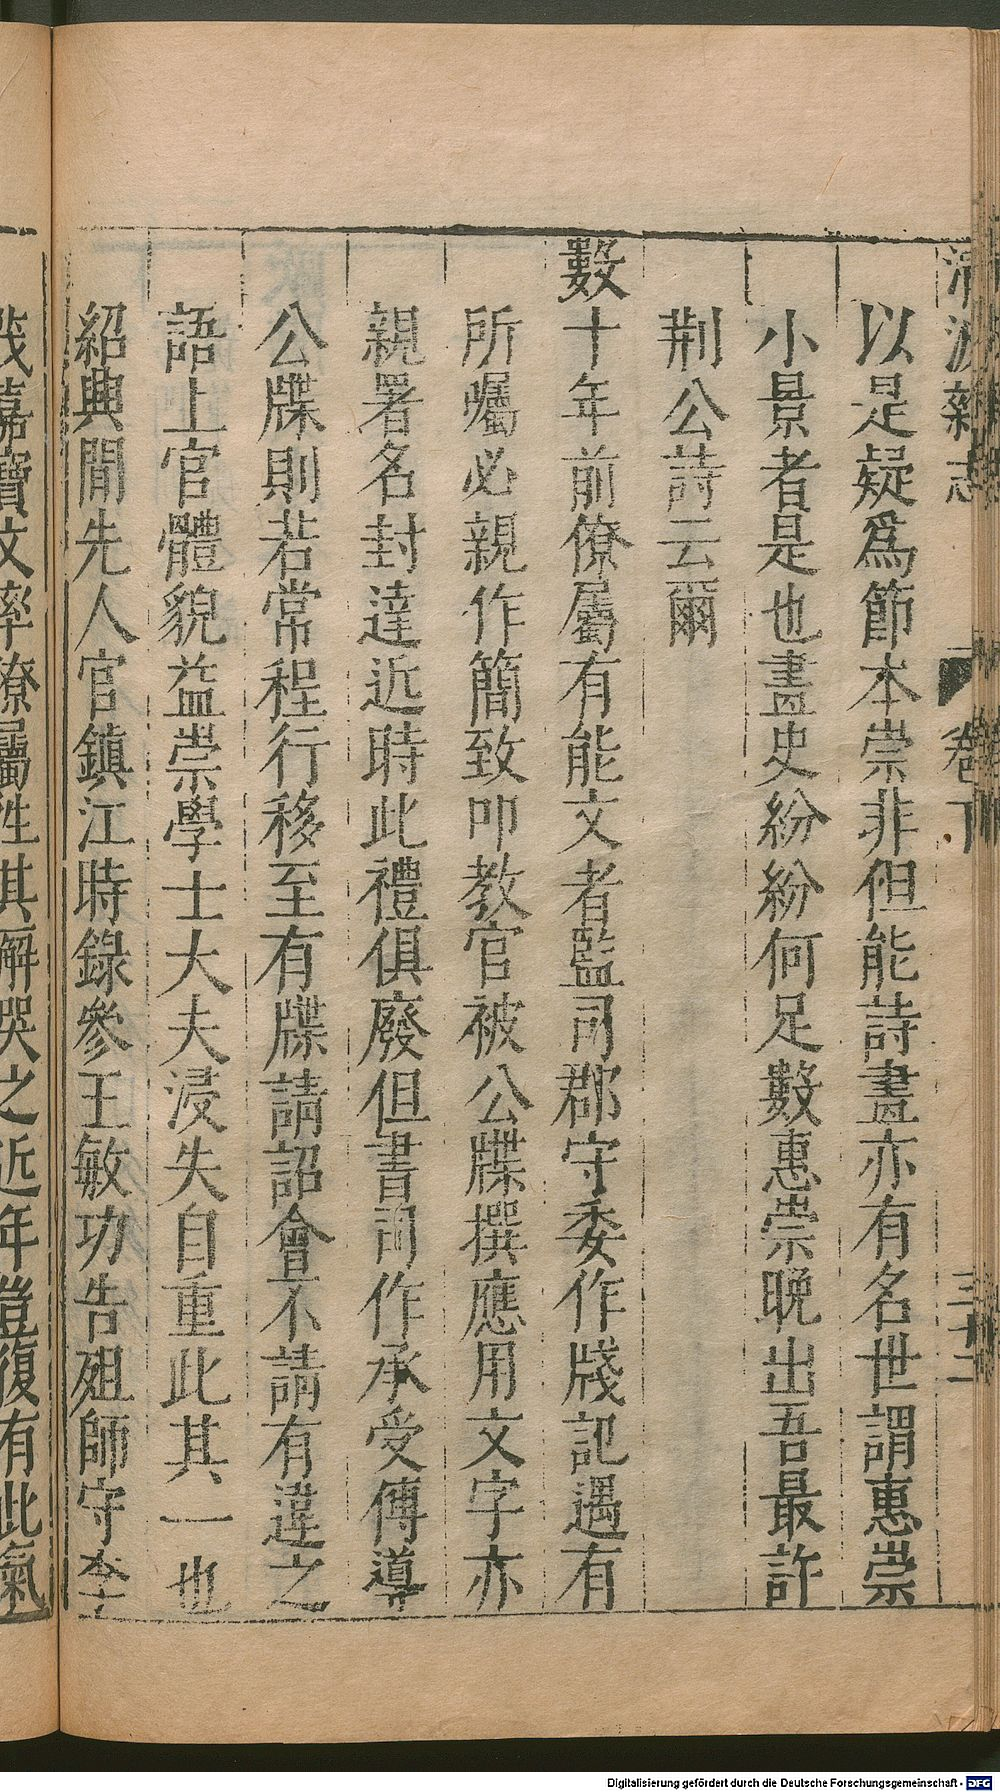 清波雜志 卷下 三十二
以是疑爲節本崇非但能詩畫亦有名世謂惠崇
小景者是也畫史紛紛何足數惠崇晚出吾最許
荆公詩云爾
數十年前僚屬有能文者監司郡守委作牋記遇有
所囑必親作簡致叩教官被公牒撰應用文字亦
親署名封達近時此禮俱廢但書詞作承受傳導
公牒則若常程行移至有牒請詔會不請有違之
語上官體貌益崇學士大夫浸失自重此其一也
紹興閒先人官鎮江時錄參王敏功告殂師守李
茂嘉寶文率僚屬往其廨哭之近年豈復有此氣
Digitalisierung gefördert durch die Deutsche Forschungsgemeinschaft - DFG